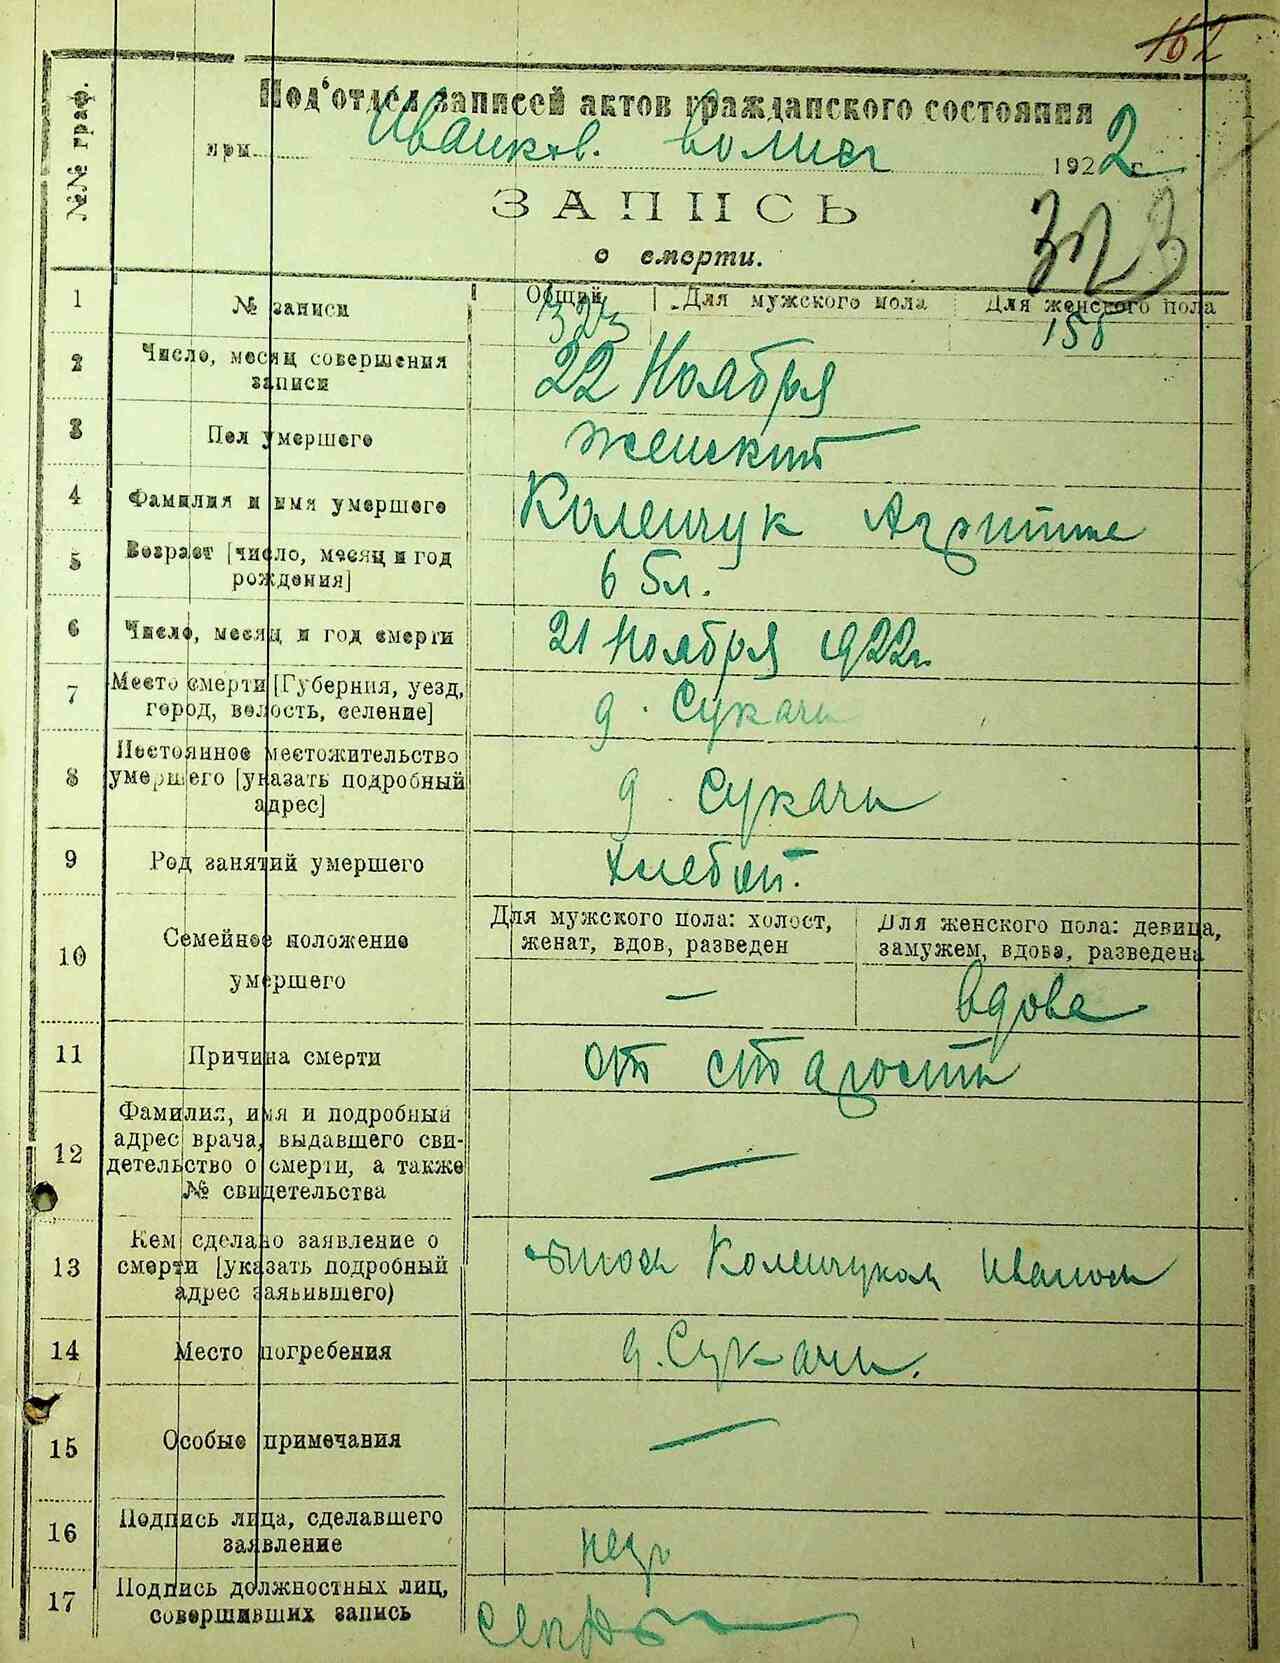 162
№№ граф.
Под'отдел записей актов гражданского состояния
при Иванков. волисп 1922 г.
ЗАПИСЬ
о смерти.
323
1 № записи Общий Для мужского пола Для женского пола
323 158
2 Число, месяц совершения
записи
22 Ноября
3 Пол умершего женский
4 Фамилия и имя умершего Коленчук
5 Возраст [число, месяц и год
рождения]
65л.
6 Число, месяц и год смерти 21 Ноября 1922г.
7 Место смерти [Губерния, уезд,
город, волость, селение]
д. Сукачи
8 Постоянное местожительство
умершего [указать подробный
адрес]
д. Сукачи
9 Род занятий умершего хлебоп.
10 Семейное положение
умершего
Для мужского пола: холост,
женат, вдов, разведен
Для женского пола: девица,
замужем, вдова, разведена
— вдова
11 Причина смерти от старости
12 Фамилия, имя и подробный
адрес врача, выдавшего сви-
детельство о смерти, а также
№ свидетельства
—
13 Кем сделано заявление о
смерти [указать подробный
адрес заявившего)
Коленчуком Иваном
14 Место погребения д. Сукачи.
15 Особые примечания —
16 Подпись лица, сделавшего
заявление
негр
17 Подпись должностных лиц,
совершивших запись
Секр